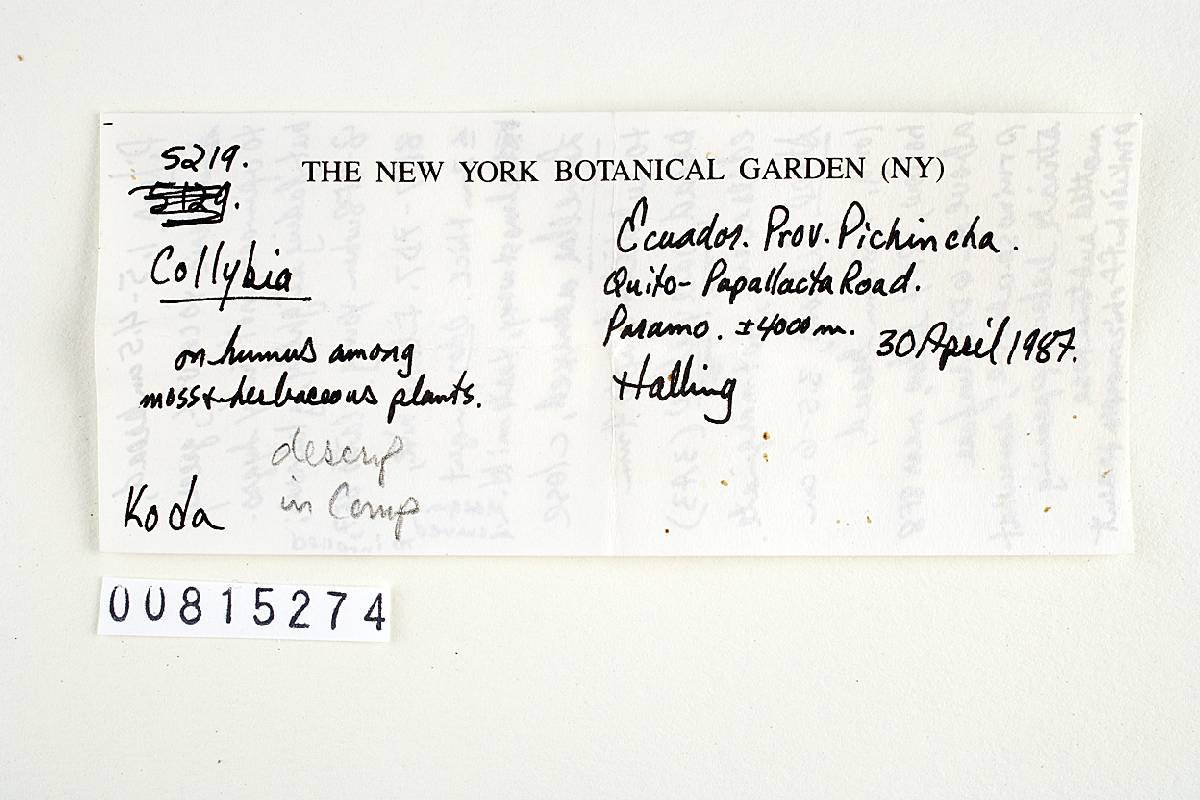 5219.
5129.
THE NEW YORK BOTANICAL GARDEN (NY)
Collybia
on humus among
moss & herbaceous plants.
descrip
in Comp
Koda
Ecuador. Prov. Pichincha.
Quito - Papallacta Road.
Paramo. ±4000m. 30 April 1987.
Halling
00815274